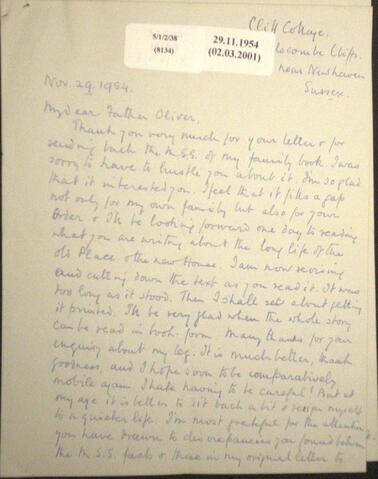 Cliff Cottage.
5/1/2/38
(8134)
29.11.1954
(02.03.2001)
scombe Cliffs.
near Newhaven
Sussex.
Nov. 29. 1954.
My dear Father Oliver.
Thank you very much for your letter & for
sending back the M.S.S. of my family book. I was
sorry to have to hustle you about it. I'm so glad
that it interested you. I feel that it fills a gap
not only for my own family but also for your
Order & I'll be looking forward one day to reading
what you are writing about the long life of the
old Place & the new House. I am now revising
and cutting down the text as you read it. It was
too long as it stood. Then I shall set about getting
it printed. I'll be very glad when the whole story
can be read in book-form. Many thanks for your
enquiry about my leg. It is much better, thank
goodness, and I hope soon to be comparatively
mobile again. I hate having to be careful! But at
my age it is better to sit back a bit & resign myself
to a quieter life. I'm most grateful for the attention
you have drawn to discrepancies you found between
the M.S.S. facts & those in my original letter to